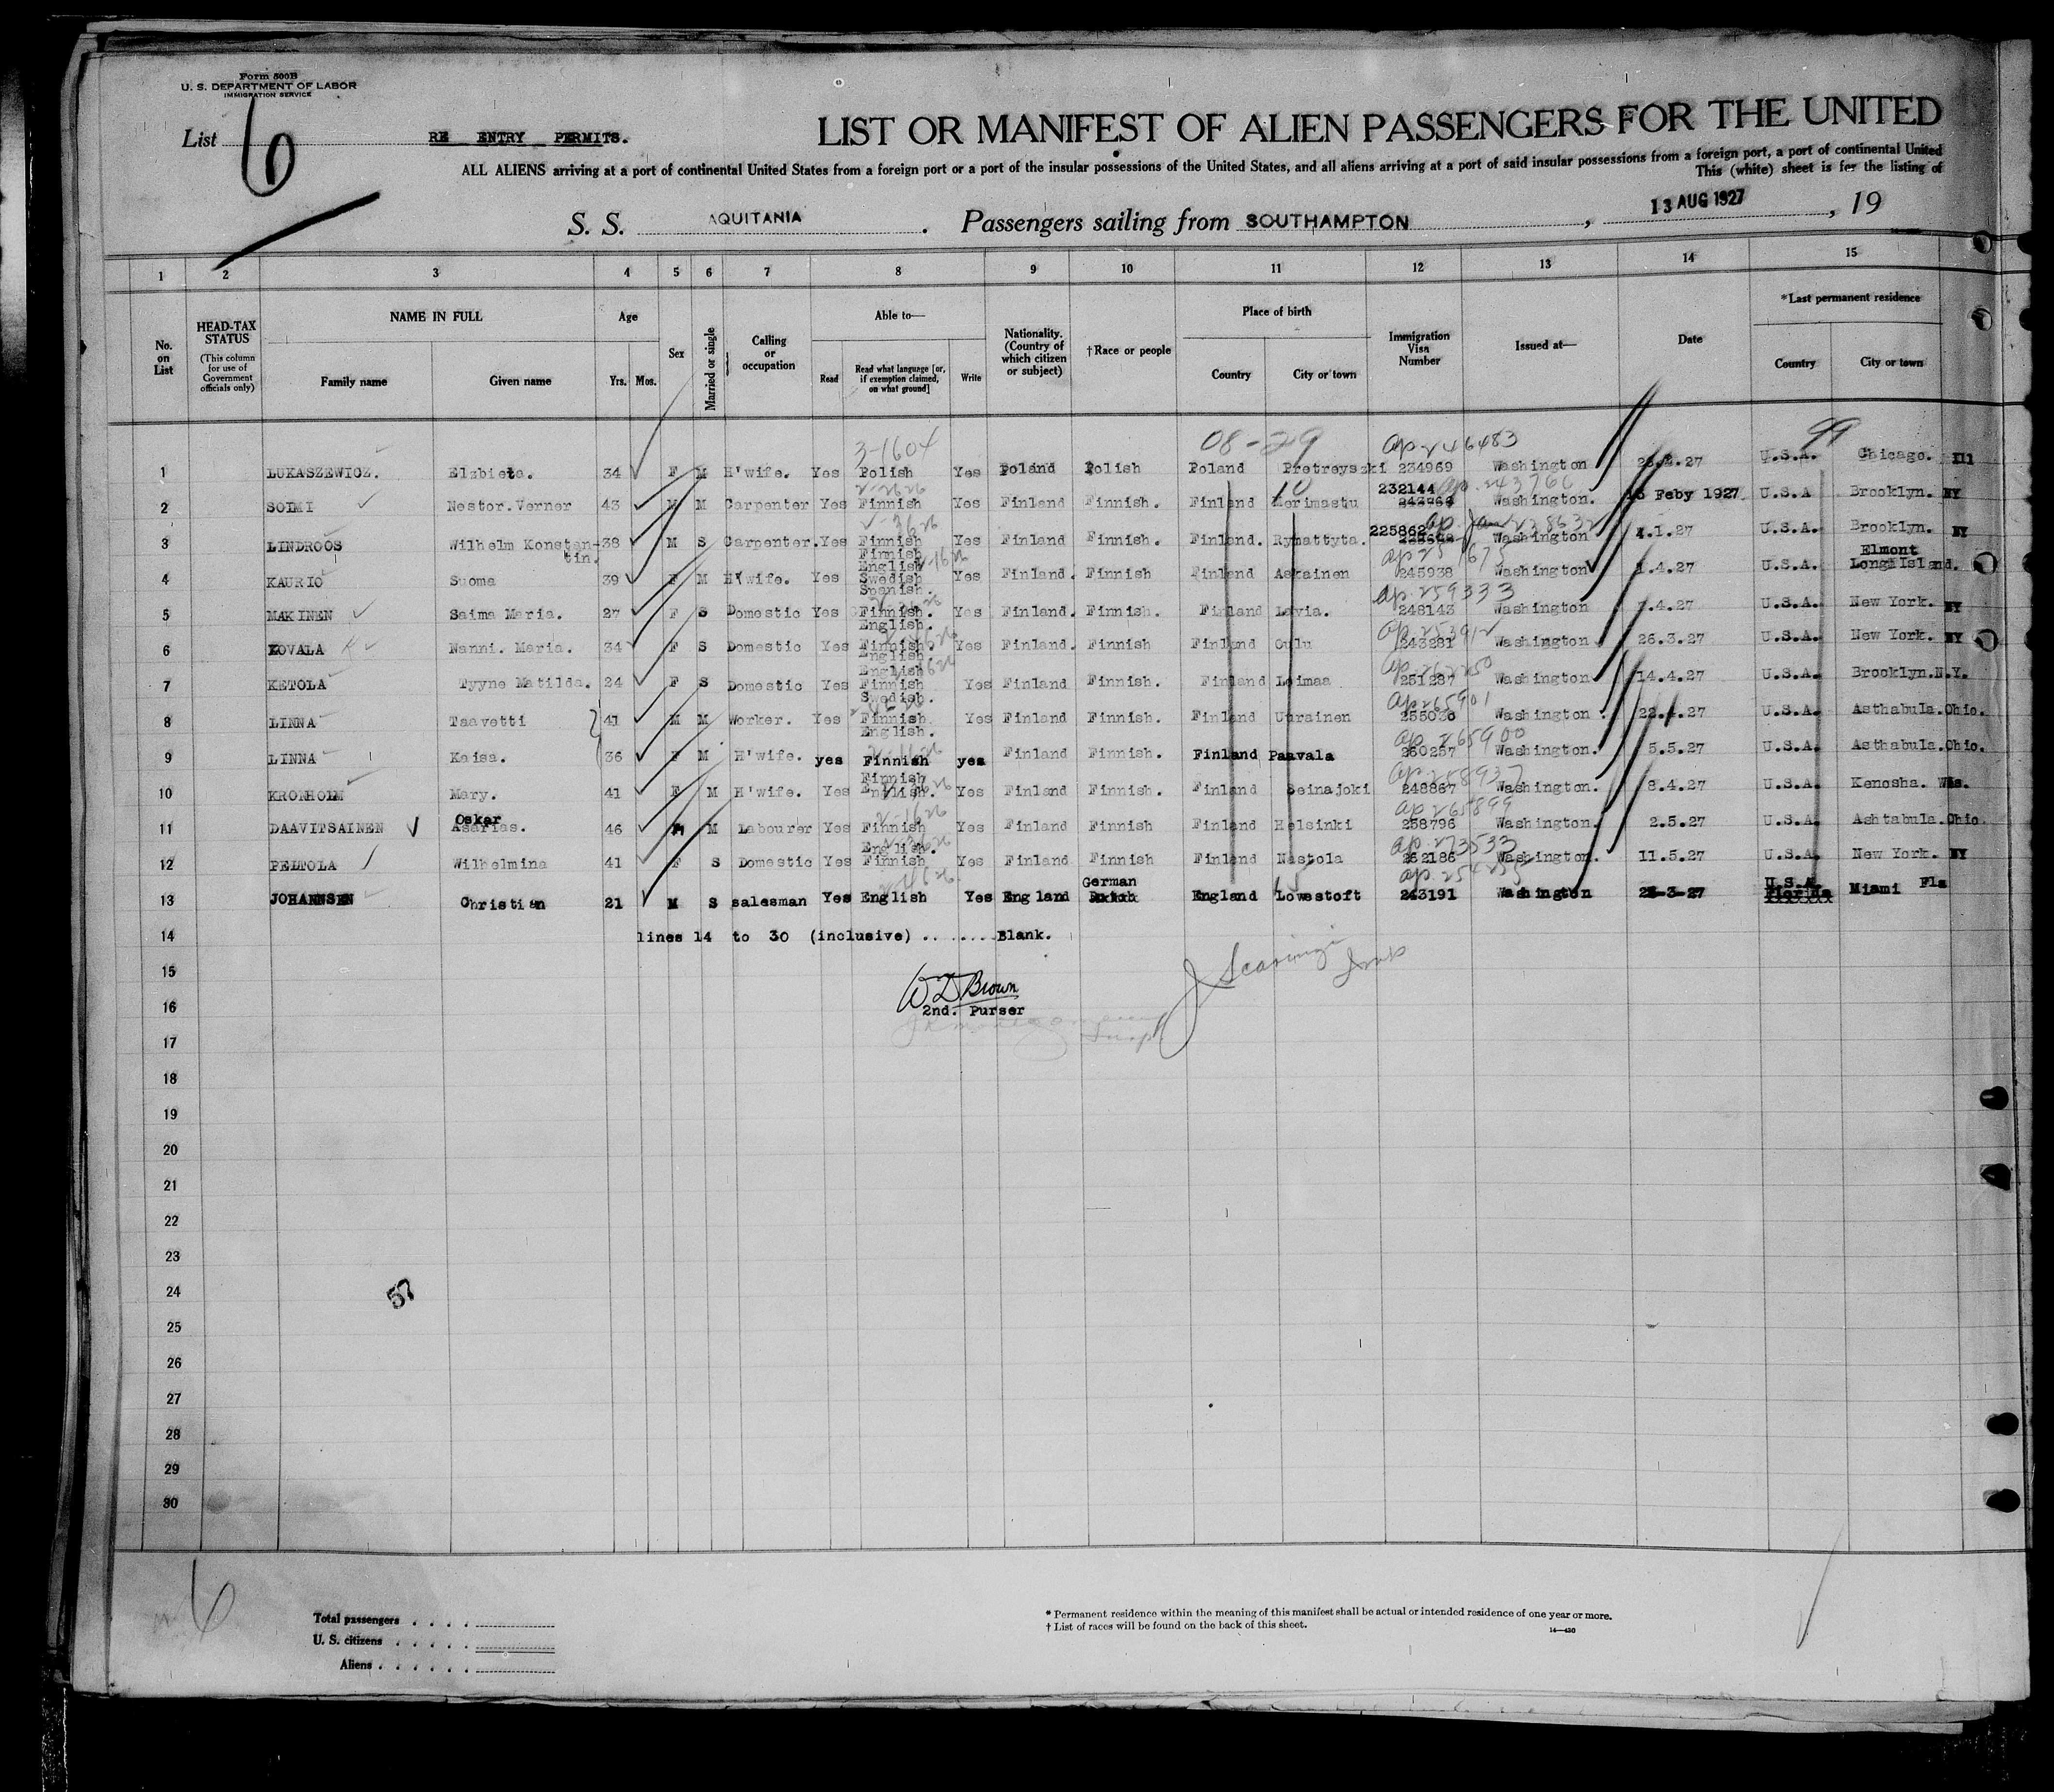 Form 500B
U. S. DEPARTMENT OF LABOR
IMMIGRATION SERVICE
List 6 RE ENTRY PERMITS.
LIST OR MANIFEST OF ALIEN PASSENGERS FOR THE UNITED
ALL ALIENS arriving at a port of continental United States from a foreign port or a port of the insular possessions of the United States, and all aliens arriving at a port of said insular possessions from a foreign port, a port of continental United
This (white) sheet is for the listing of
S. S. AQUITANIA. Passengers sailing from SOUTHAMPTON, 13 AUG 1927, 19
1 2 3 4 5 6 7 8 9 10 11 12 13 14 15
No. on List
HEAD-TAX STATUS (This column for use of Government officials only)
NAME IN FULL
Family name Given name
Age
Yrs. Mos.
Sex
Married or single
Calling or occupation
Able to—
Read Read what language [or, if exemption claimed, on what ground] Write
Nationality. (Country of which citizen or subject)
†Race or people
Place of birth
Country City or town
Immigration Visa Number
Issued at—
Date
*Last permanent residence
Country City or town
3-1604 08-29 ap 246483 99
1 LUKASZEWICZ. Elzbieta. 34 F M H'wife. Yes Polish Yes Poland Polish Poland Pretreyszki 234969 Washington .27 U.S.A. Chicago. Ill
2 SOIMI Nestor.Verner 43 M M Carpenter Yes Finnish Yes Finland Finnish. Finland Merimastu 232144 Washington. Feby 1927. U.S.A Brooklyn. NY
3 LINDROOS Wilhelm Konstantin. 38 M S Carpenter. Yes Finnish Yes Finland Finnish. Finland. Rymattyta. 225862 Washington 4.1.27 U.S.A. Brooklyn. NY
4 KAURIO Suoma 39 F M H'wife. Yes Finnish English Swedish Spanish. Yes Finland. Finnish Finland Askainen 245938 Washington 1.4.27 U.S.A. Elmont Long Island.
ap 259333
5 MAKINEN Saima Maria. 27 F S Domestic Yes Finnish. English. Yes Finland. Finnish. Finland Lavia. 248143 Washington .4.27 U.S.A. New York. NY
6 KOVALA Nanni. Maria. 34 F S Domestic Yes Finnish. English Yes Finland. Finnish Finland Oulu 243281 Washington 26.3.27 U.S.A. New York. NY
ap 262250
7 KETOLA Tyyne Matilda. 24 F S Domestic Yes English Finnish Swedish. Yes Finland Finnish. Finland Loimaa 251287 Washington 14.4.27 U.S.A. Brooklyn.N.Y.
ap 265901
8 LINNA Taavetti 41 M M Worker. Yes Finnish. English. Yes Finland Finnish. Finland Uurainen 255030 Washington 22.4.27 U.S.A. Asthabula.Ohio.
ap 265900
9 LINNA Kaisa. 36 F M H'wife. yes Finnish yes Finland Finnish. Finland Paavala 260257 Washington. 5.5.27 U.S.A. Asthabula.Ohio.
ap 258937
10 KRONHOLM Mary. 41 F M H'wife. Yes Finnish English. Yes Finland Finnish. Finland Seinajoki 248867 Washington. 8.4.27 U.S.A. Kenosha. Wis.
ap 265899
11 DAAVITSAINEN Oskar Asarias. 46 M M Labourer Yes Finnish English. Yes Finland Finnish Finland Helsinki 258796 Washington. 2.5.27 U.S.A. Ashtabula.Ohio
ap 273533
12 PELTOLA Wilhelmina 41 F S Domestic Yes Finnish Yes Finland Finnish Finland Nastola 262186 Washington. 11.5.27 U.S.A. New York. NY
ap 254235
13 JOHANNSEN Christian 21 M S salesman Yes English Yes England German England Lowestoft 243191 Washington 23-3-27 U.S.A. Florida Miami Fla
14 lines 14 to 30 (inclusive) ....... Blank.
15
W D Brown
16 2nd. Purser
17
18
19
20
21
22
23
24 57
25
26
27
28
29
30
6
Total passengers
U. S. citizens
Aliens
* Permanent residence within the meaning of this manifest shall be actual or intended residence of one year or more.
† List of races will be found on the back of this sheet.
14—430